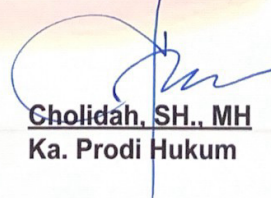 Cholidah, SH., MH
Ka. Prodi Hukum